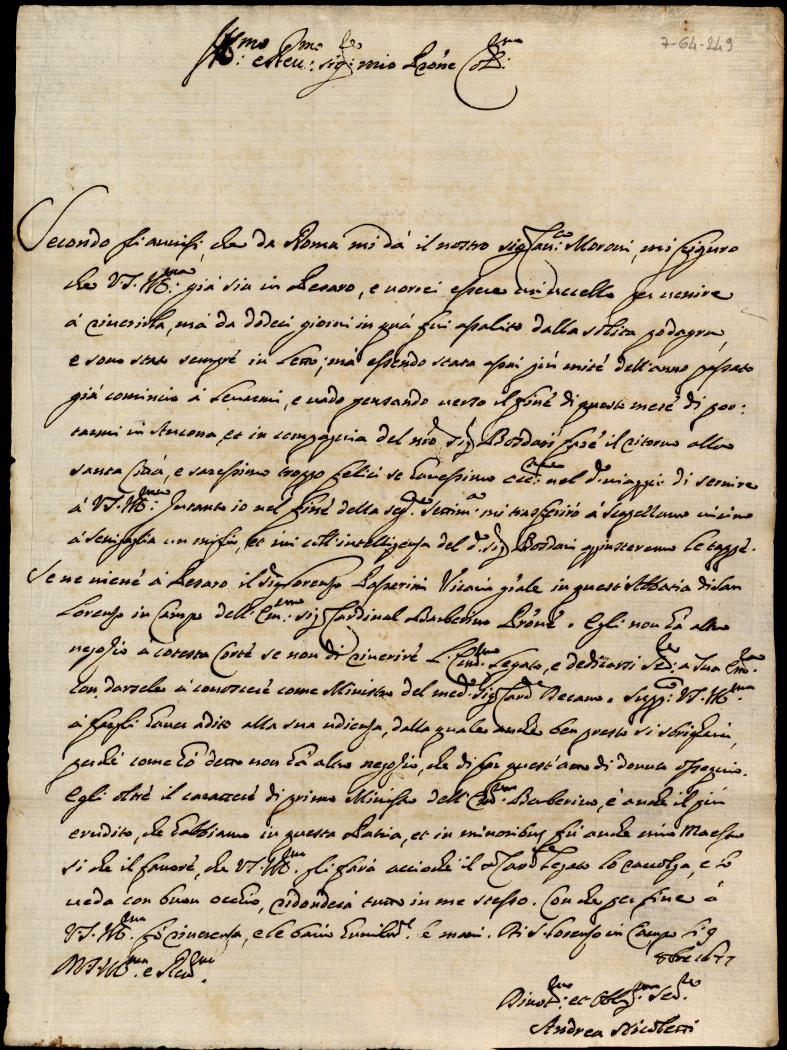 7-64-249
Ill:mo e Reu:mo sig:re mio Prone Col:mo
Secondo gl'auuisi, che da Roma mi dà il nostro sig. Moroni, mi figuro
che V.S. Ill:ma già sia in Pesaro, e uorrei essere un'uccello per uenire
à riuerirla, mà da dodeci giorni in quà fui assalito dalla solita podagra,
e sono stato sempre in letto; mà essendo stata assai più mite dell'anno passato
già comincio à leuarmi, e uado pensando uerso il fine di questo mese di por-
tarmi in Ancona, et in compagnia del nro sig. Bosdari fare il ritorno alla
santa Città, e saressimo troppo felici se hauessimo nel do. uiaggio di seruire
à V.S. Ill:ma Intanto io nel fine della seg:te settim:na mi trasferirò à uicino
à Senigaglia un miglio, et iui coll'intelligenza del do. sig. Bosdari aggiusteremo le tappe.
Se ne uiene à Pesaro il sig. Lorenzo Gasperini Vicario gñale in quest'Abbatia di San
Lorenzo in Campo dell'Em:mo sig. Cardinal Barberino Prone. Egli non hà altro
negozio à cotesta Corte se non di riuerire l'Em:mo Legato, e dedicarsi Ser:re a Sua Em:za
con darsele à conoscere come Ministro del med:o sig. Card:le Decano. Supp:co V.S. Ill:ma
à fargli hauer adito alla sua udienza, dalla quale anche ben presto si sbrigherà,
perche come hò detto non hà altro negozio, che di far quest'atto di douuto ossequio.
Egli oltre il carattere di primo Ministro dell'Em:mo Barberino, è anche il più
erudito, che habbiamo in questa Patria, et in minoribus fù anche mio Maestro
si che il fauore, che V.S. Ill:ma gli farà acciochè il s. Card:le Legato lo raccolga, e lo
ueda con buon occhio, ridonderà tutto in me stesso. Con che per fine à
V.S. Ill:ma fò riuerenza, e le bacio humilm:te le mani. Di S. Lorenzo in Campo li 9
8bre 1677
Di V.S. Ill:ma e Reu:ma
Diuot:mo et Obblig:mo Ser:re
Andrea Nicoletti